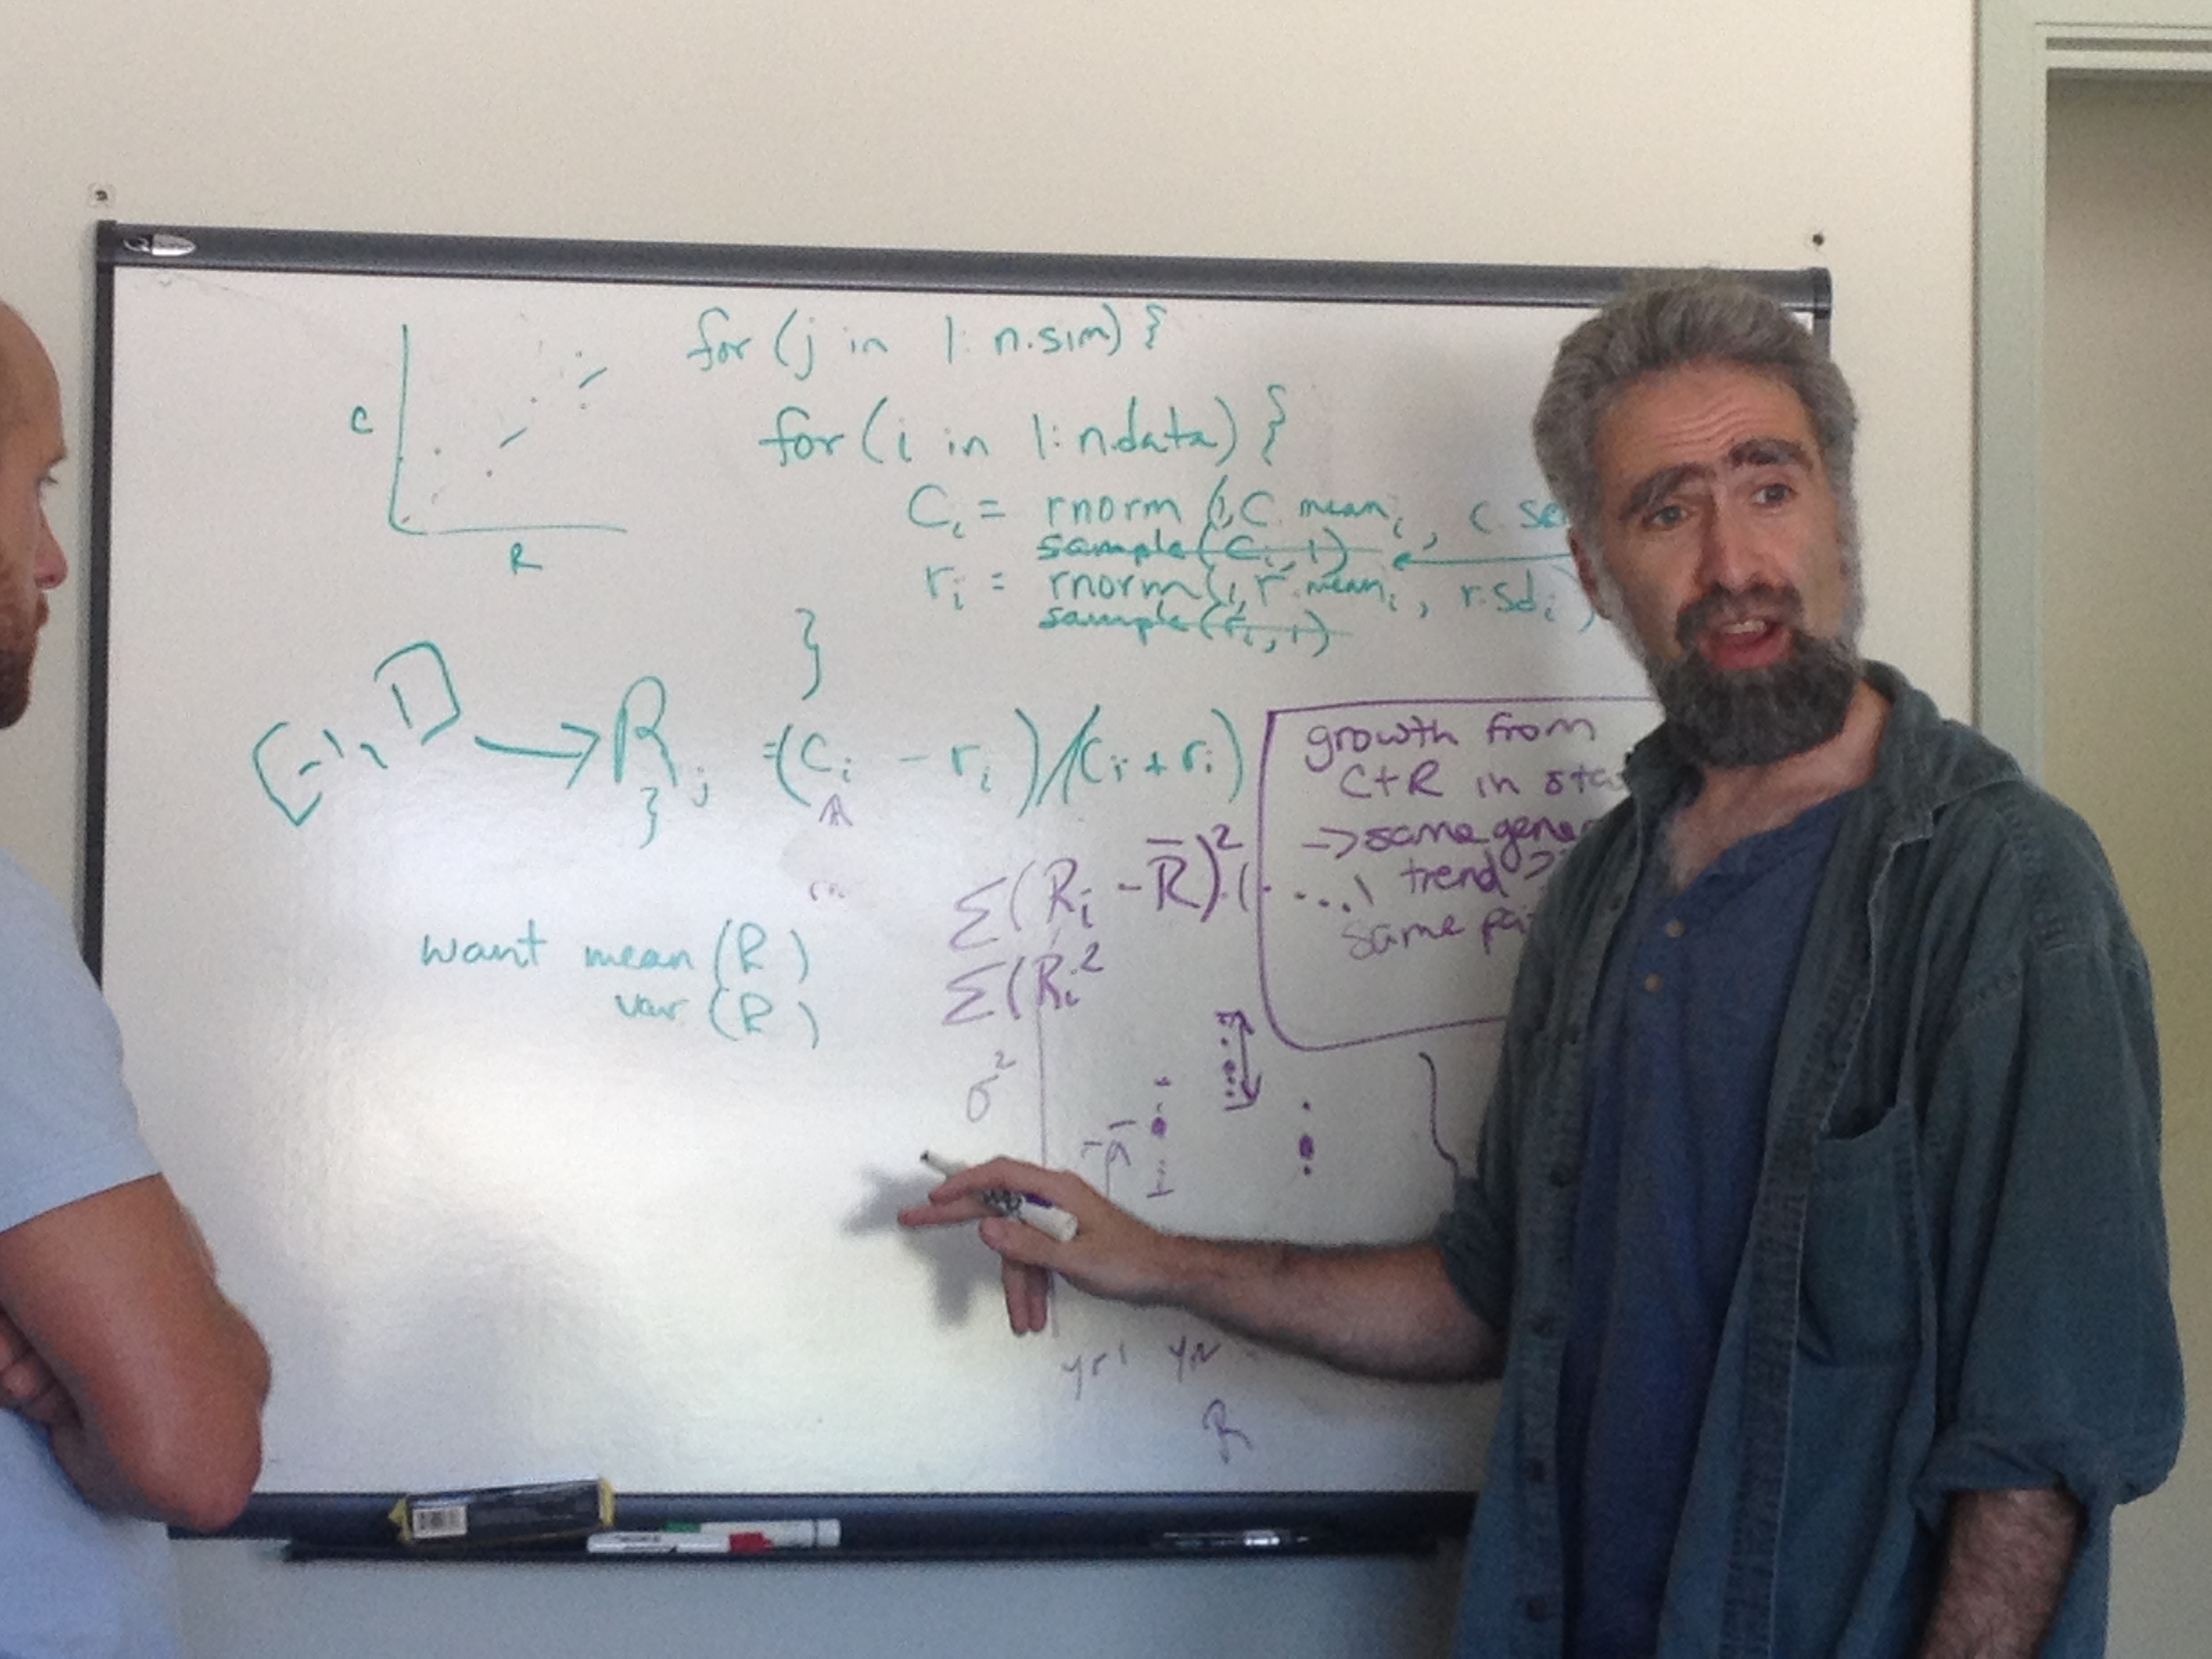 for (j in 1:n.sim) {
for (i in 1:n.data) {
C
R
Ci = rnorm (1, C.mean i, c.se
sample(Ci, 1)
ri = rnorm(1, r.mean i, r.sd i)
sample(ri, 1)
}
[-1, 1] → Rj = (Ci - ri)/(Ci + ri)
}
want mean (R)
var (R)
Σ(Ri - R̄)²
Σ(Ri²
σ²
growth from
C+R in sta
→ same gene
trend
same pai
yr1 yr2
R